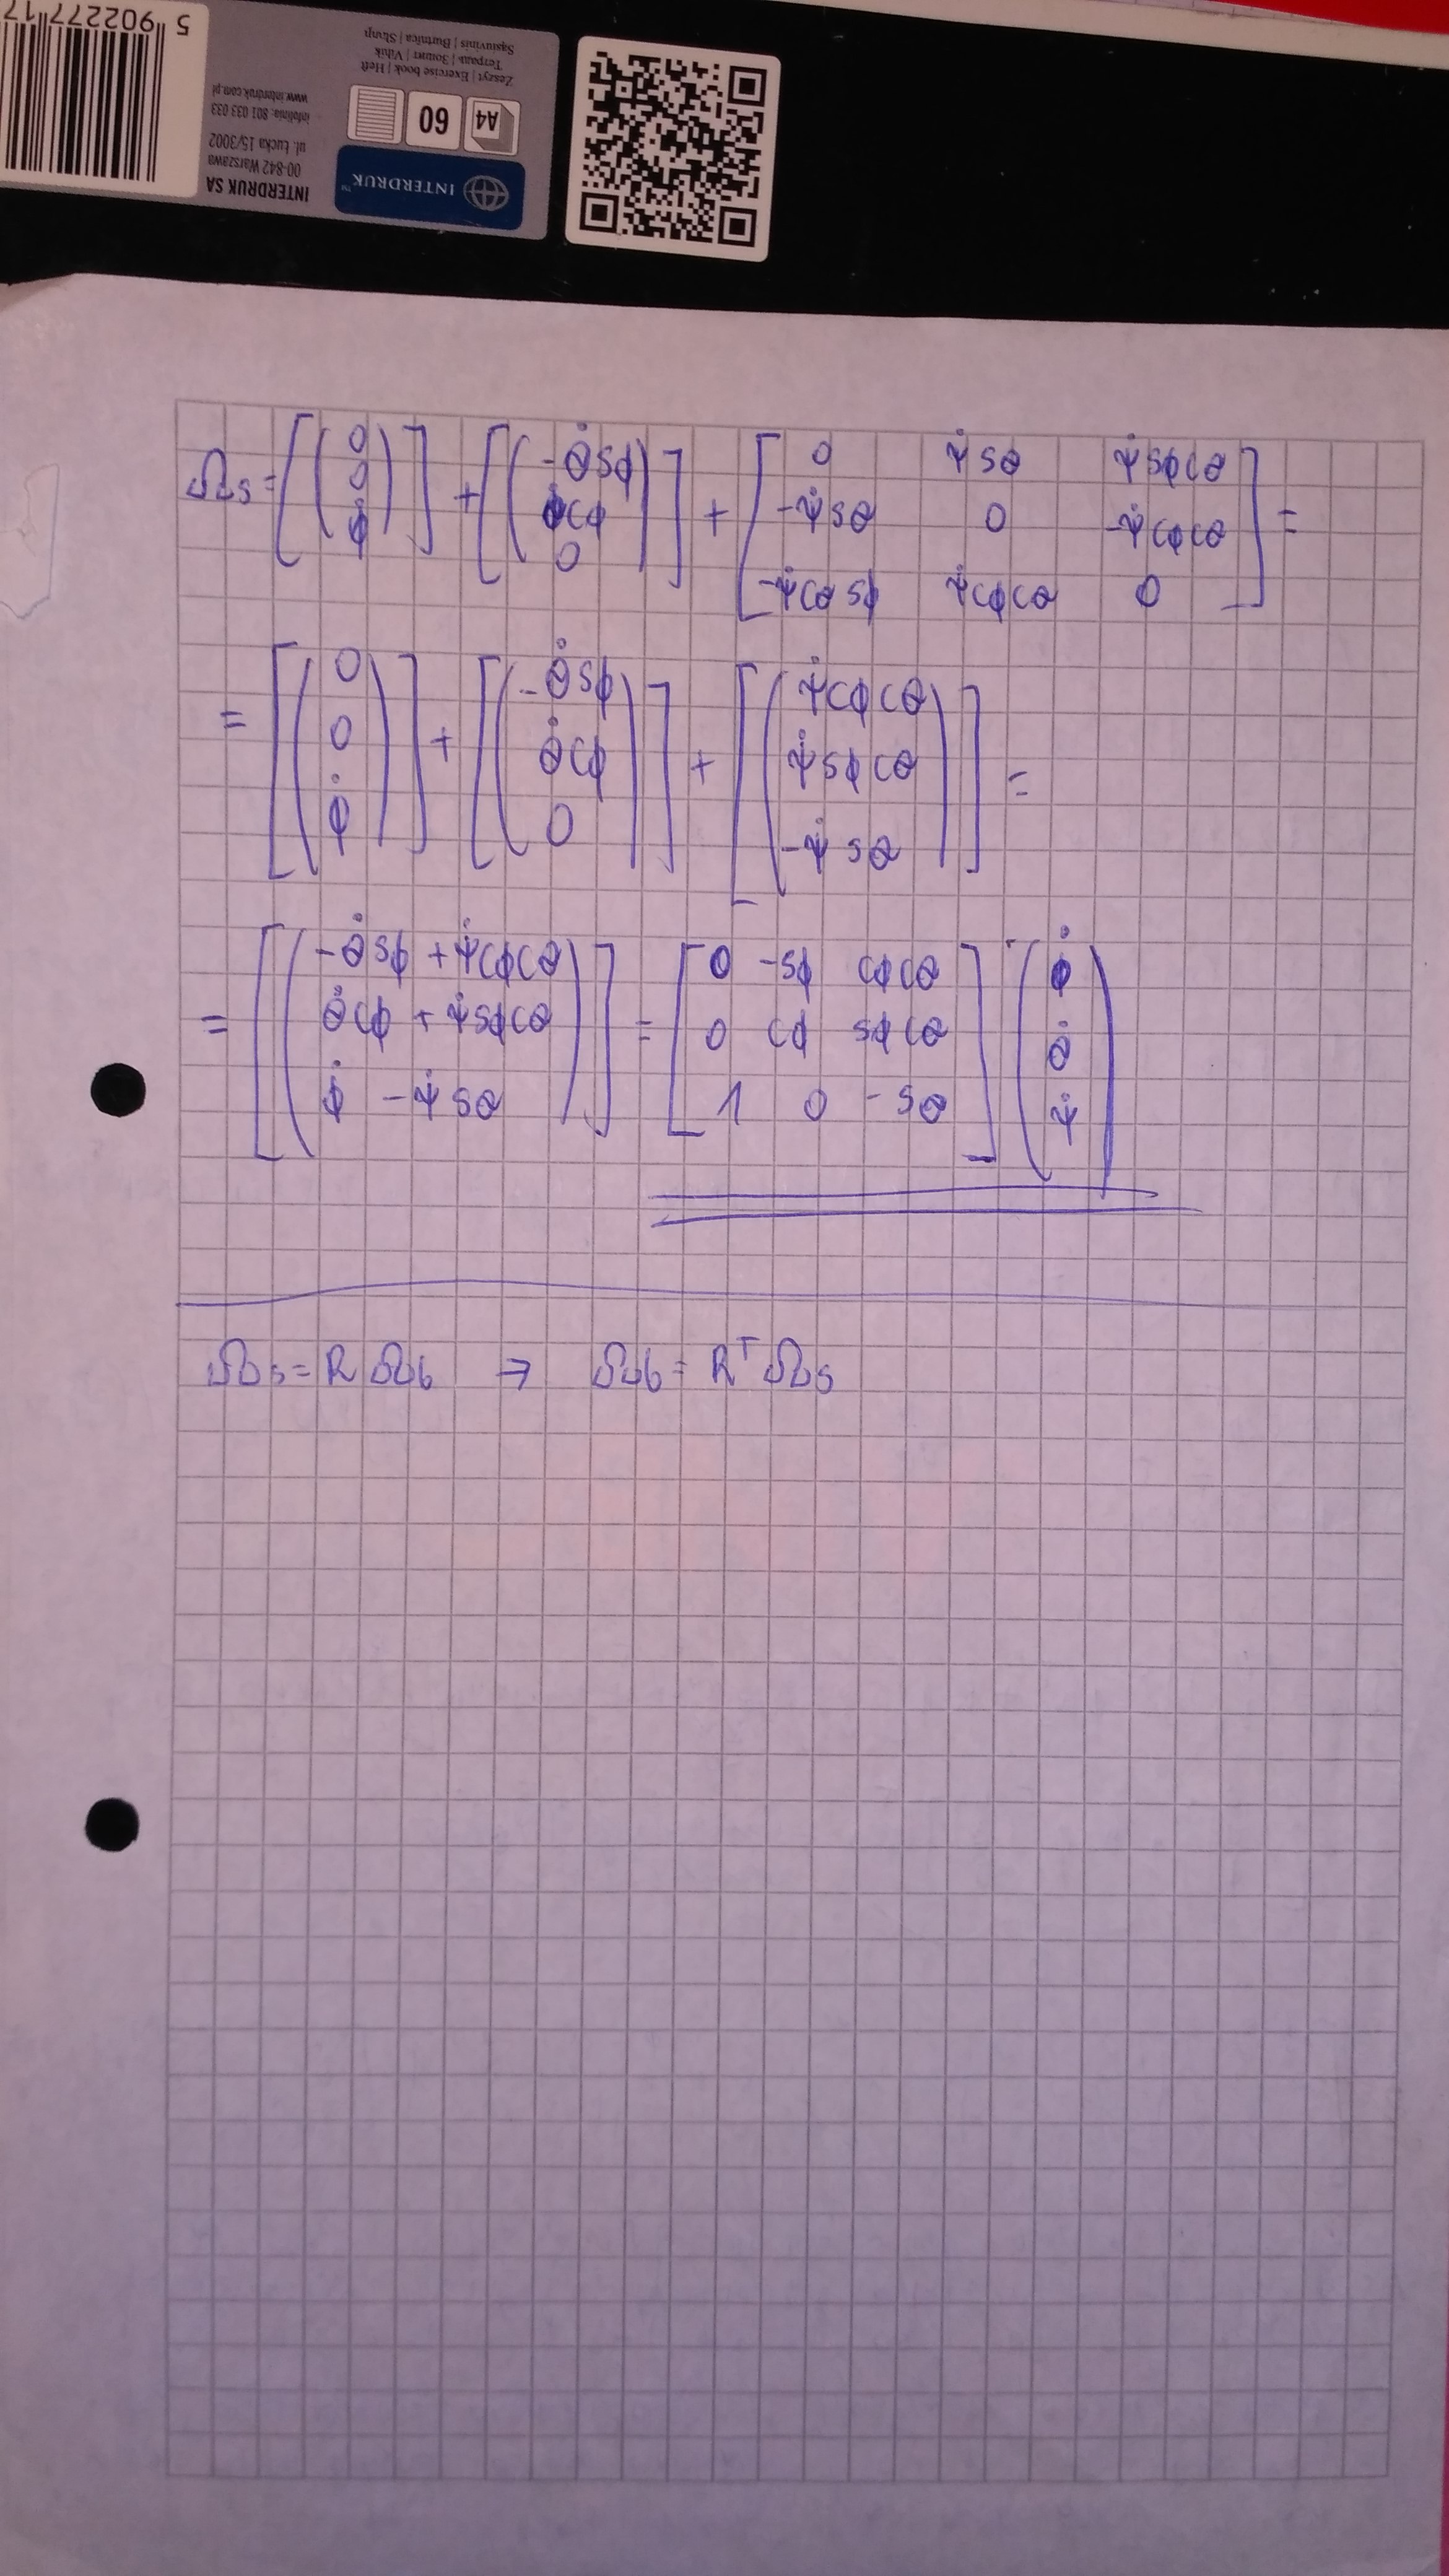 5 902277 17
INTERDRUK SA
00-842 Warszawa
ul. Łucka 15/3002
infolinia: 801 033 033
www.interdruk.com.pl
INTERDRUK™
A4 60
Zeszyt | Exercise book | Heft
Тетрадь | Зошит | Vihik
Sąsiuvinis | Burtnica | Sešit
Ωs = [(0 0 φ̇)] + [(-θ̇sφ θ̇cφ 0)] + [0 ψ̇sθ ψ̇sφcθ; -ψ̇sθ 0 -ψ̇cφcθ; -ψ̇cθsφ ψ̇cφcθ 0] =
= [(0 0 φ̇)] + [(-θ̇sφ θ̇cφ 0)] + [(ψ̇cφcθ ψ̇sφcθ -ψ̇sθ)] =
= [(-θ̇sφ + ψ̇cφcθ θ̇cφ + ψ̇sφcθ φ̇ - ψ̇sθ)] = [0 -sφ cφcθ; 0 cφ sφcθ; 1 0 -sθ] · (φ̇ θ̇ ψ̇)
Ωs = R Ωb → Ωb = Rᵀ Ωs